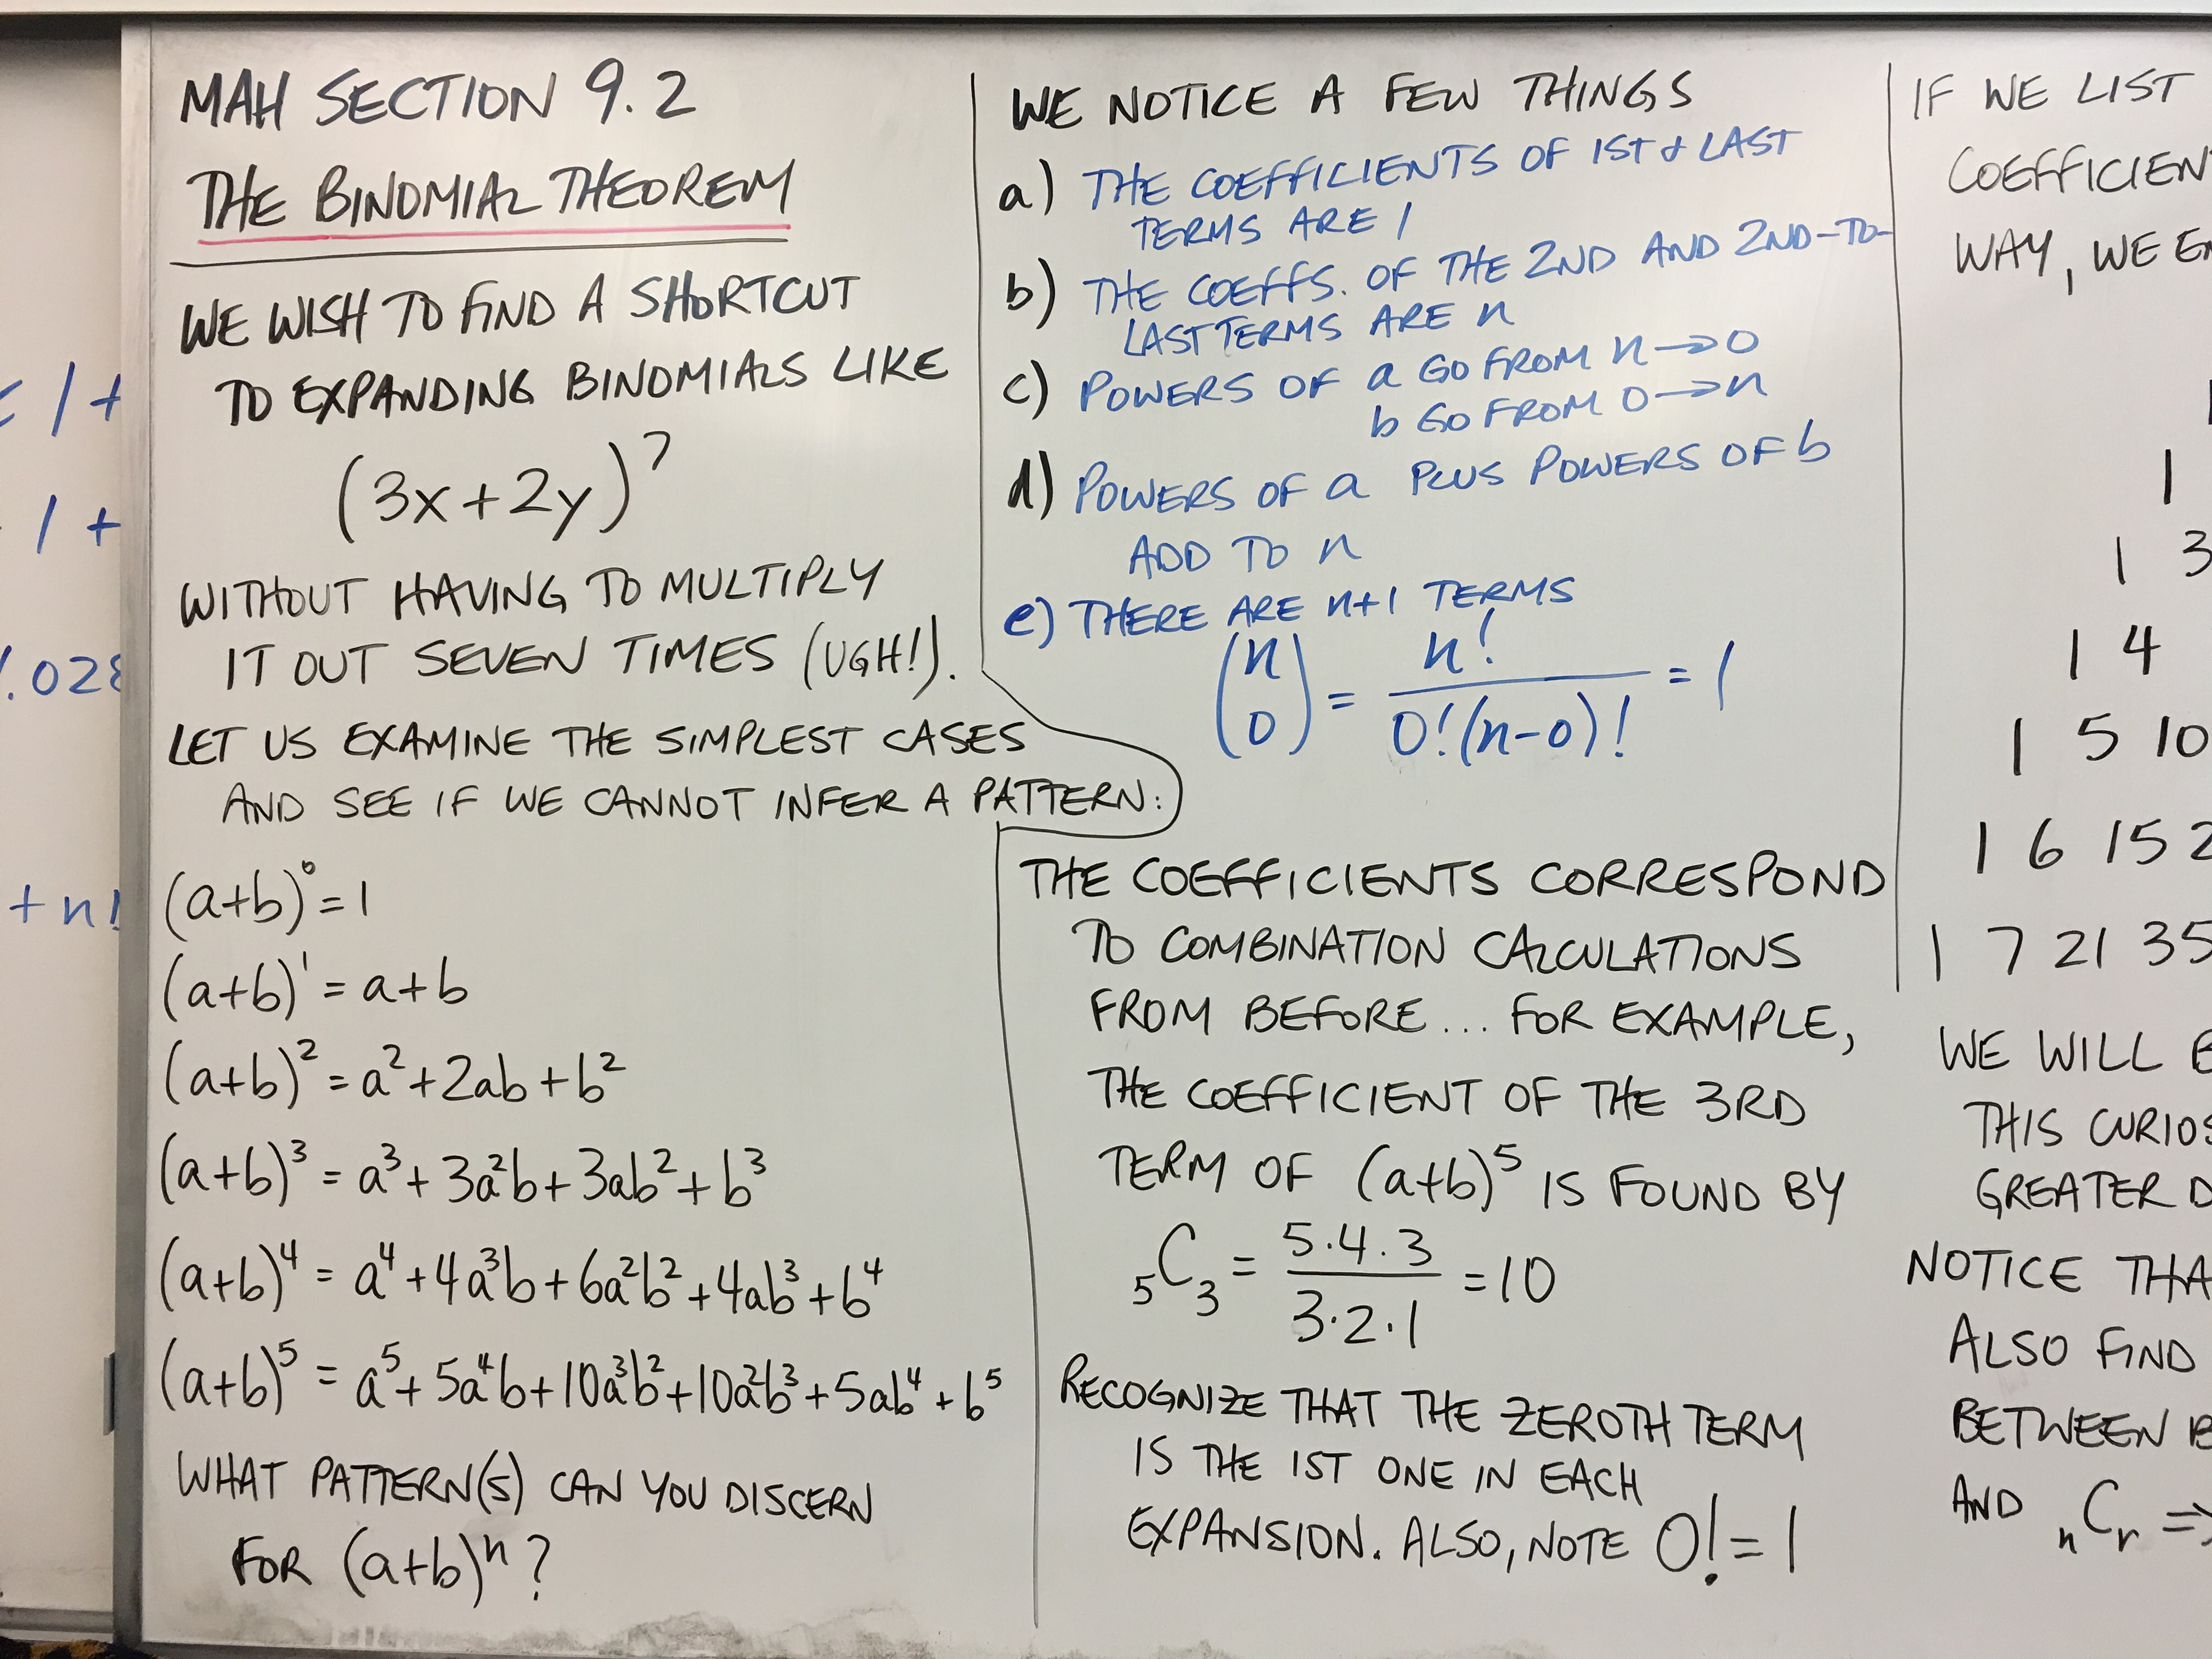 MAH SECTION 9.2
THE BINOMIAL THEOREM
WE WISH TO FIND A SHORTCUT
TO EXPANDING BINOMIALS LIKE
(3x+2y)⁷
WITHOUT HAVING TO MULTIPLY
IT OUT SEVEN TIMES (UGH!).
LET US EXAMINE THE SIMPLEST CASES
AND SEE IF WE CANNOT INFER A PATTERN:
(a+b)⁰ = 1
(a+b)¹ = a+b
(a+b)² = a²+2ab+b²
(a+b)³ = a³+3a²b+3ab²+b³
(a+b)⁴ = a⁴+4a³b+6a²b²+4ab³+b⁴
(a+b)⁵ = a⁵+5a⁴b+10a³b²+10a²b³+5ab⁴+b⁵
WHAT PATTERN(S) CAN YOU DISCERN
FOR (a+b)ⁿ?
WE NOTICE A FEW THINGS
a) THE COEFFICIENTS OF 1ST & LAST
TERMS ARE 1
b) THE COEFFS. OF THE 2ND AND 2ND-TO-
LAST TERMS ARE n
c) POWERS OF a GO FROM n→0
b GO FROM 0→n
d) POWERS OF a PLUS POWERS OF b
ADD TO n
e) THERE ARE n+1 TERMS
(n 0) = n!/0!(n-0)! = 1
THE COEFFICIENTS CORRESPOND
TO COMBINATION CALCULATIONS
FROM BEFORE... FOR EXAMPLE,
THE COEFFICIENT OF THE 3RD
TERM OF (a+b)⁵ IS FOUND BY
₅C₃ = 5·4·3/3·2·1 = 10
RECOGNIZE THAT THE ZEROTH TERM
IS THE 1ST ONE IN EACH
EXPANSION. ALSO, NOTE 0! = 1
IF WE LIST
COEFFICIEN
WAY, WE
1
1
1 3
1 4
1 5 10
1 6 15 2
1 7 21 35
WE WILL
THIS CURIOS
GREATER D
NOTICE THA
ALSO FIND
BETWEEN
AND nCr ⇒
1+
1+
1.028
+n!